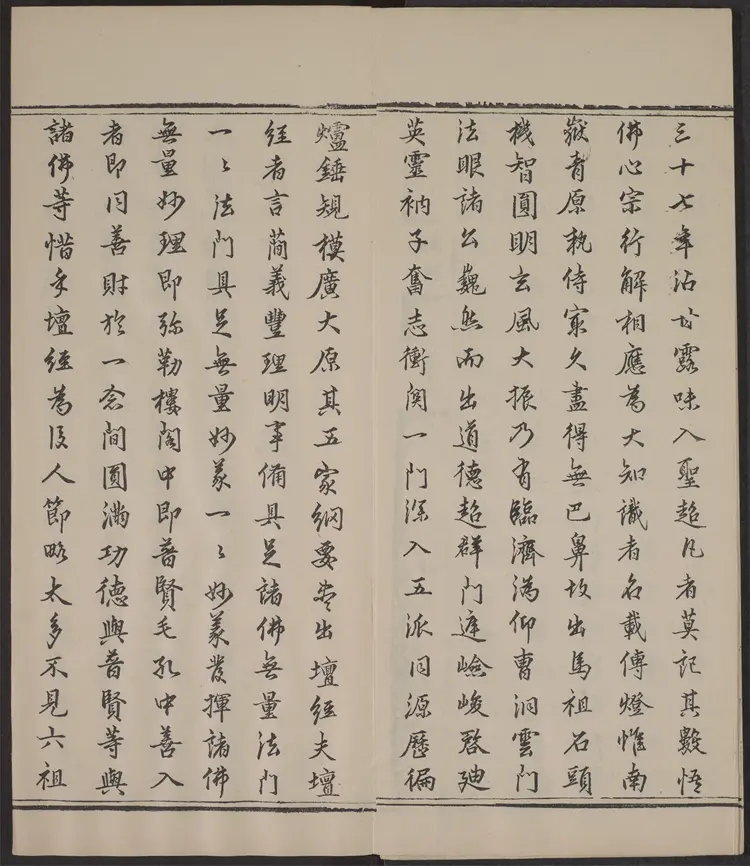 三十七年沾甘露味入聖超凡者莫記其數悟
佛心宗行解相應為大知識者名載傳燈惟南
嶽青原執侍最久盡得無巴鼻故出馬祖石頭
機智圓明玄風大振乃有臨濟溈仰曹洞雲門
法眼諸公巍然而出道德超群門庭嶮峻啓迪
英靈衲子奮志衝関一門深入五派同源歷徧
爐錘規模廣大原其五家綱要盡出壇經夫壇
經者言簡義豐理明事備具足諸佛無量法門
一〻法門具足無量妙義一〻妙義發揮諸佛
無量妙理即弥勒樓閣中即普賢毛孔中善入
者即同善財於一念間圓滿功德與普賢等與
諸佛等惜乎壇經為後人節略太多不見六祖